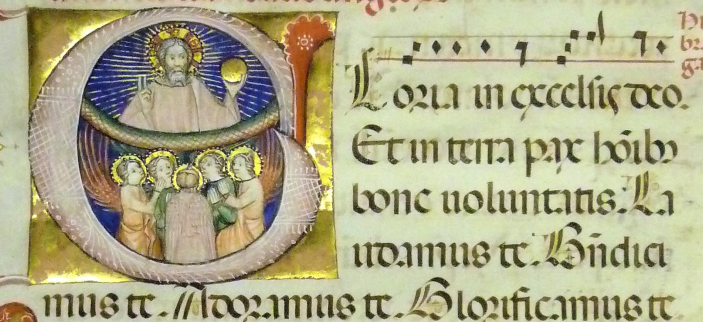 Gloria in excelsis deo.
Et in terra pax hōibꝫ
bone uoluntatis. La
udamus te. Bn̄dici
mus te. Adoramus te. Glorificamus te